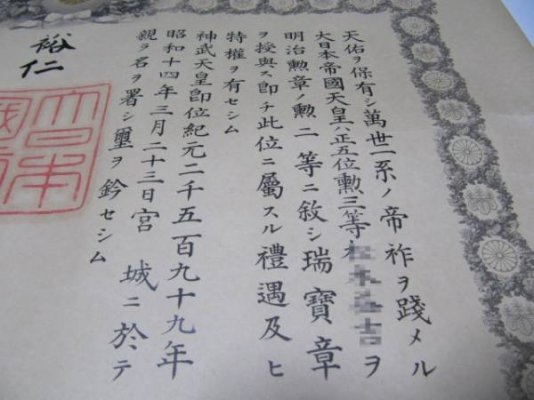 天佑ヲ保有シ萬世一系ノ帝祚ヲ踐メル
大日本帝國天皇ハ正五位勲三等 ヲ
明治勲章ノ勲二等ニ敍シ瑞寶章
ヲ授與ス即チ此位ニ屬スル禮遇及ヒ
特權ヲ有セシム
神武天皇即位紀元二千五百九十九年
昭和十四年三月二十三日宮城ニ於テ
親ラ名ヲ署シ璽ヲ鈐セシム
裕仁
大日本